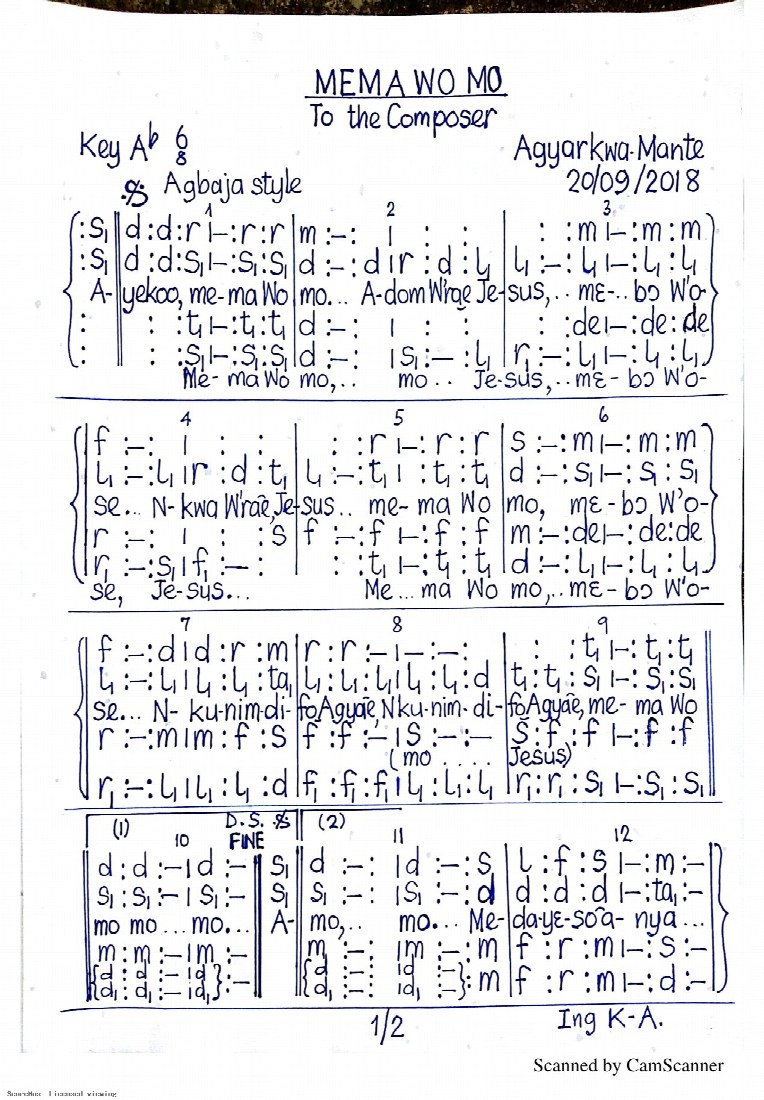 MEMA WO MO
To the Composer
Key A♭ 6/8
Agyarkwa-Mante
20/09/2018
𝄋 Agbaja style
1 2 3
:S₁ || d :d :r |– :r :r | m :– : | : : | : :m |– :m :m
:S₁ || d :d :S₁ |– :S₁ :S₁ | d :– :d |r :d :l₁ | l₁ :– :l₁ |– :l₁ :l₁
A- yekoo, me-ma Wo mo... A-dom W'raẽ Je-sus,.. mɛ-.. bɔ W'o-
: || : :t₁ |– :t₁ :t₁ | d :– : | : : | : :de |– :de :de
: || : :S₁ |– :S₁ :S₁ | d :– : |S₁ :– :l₁ | r₁ :– :l₁ |– :l₁ :l₁
Me- ma Wo mo,.. mo.. Je-sus,.. mɛ- bɔ W'o-
4 5 6
f :– : | : : | : :r |– :r :r | s :– :m |– :m :m
l₁ :– :l₁ |r :d :t₁ | l₁ :– :t₁ | :t₁ :t₁ | d :– :S₁ |– :S₁ :S₁
se... N- kwa W'raẽ, Je-sus.. me- ma Wo mo, mɛ- bɔ W'o-
r :– : | : :s | f :– :f |– :f :f | m :– :de |– :de :de
r₁ :– :S₁ |f₁ :– : | : :t₁ |– :t₁ :t₁ | d :– :l₁ |– :l₁ :l₁
se, Je-sus... Me... ma Wo mo,.. mɛ- bɔ W'o-
7 8 9
f :– :d |d :r :m | r :r :– |– :– : | : :t₁ |– :t₁ :t₁
l₁ :– :l₁ |l₁ :l₁ :ta₁ | l₁ :l₁ :l₁ |l₁ :l₁ :d | t₁ :t₁ :S₁ |– :S₁ :S₁
se... N- ku-nim-di- fo Agyaẽ, Nku-nim-di- fo Agyaẽ, me- ma Wo
r :– :m |m :f :s | f :f :– |S :– :– | S :f :f |– :f :f
(mo .... Jesus)
r₁ :– :l₁ |l₁ :l₁ :d | f₁ :f₁ :f₁ |l₁ :l₁ :l₁ | r₁ :r₁ :S₁ |– :S₁ :S₁
(1) D.S. 𝄋 (2)
10 FINE 11 12
d :d :– |d :– || S₁ || d :– : |d :– :s | l :f :s |– :m :–
S₁ :S₁ :– |S₁ :– || S₁ || S₁ :– : |S₁ :– :d | d :d :d |– :ta₁ :–
mo mo ... mo... A- mo,.. mo... Me- da-yɛ-so a- nya ...
m :m :– |m :– || m :– : |m :– :m | f :r :m |– :s :–
{d :d :– |d} :– || {d :– : |d :–} :m | f :r :m |– :d :–
{d₁ :d₁ :– |d₁} {d₁ :– : |d₁ :–}
1/2
Ing K-A.
Scanned by CamScanner